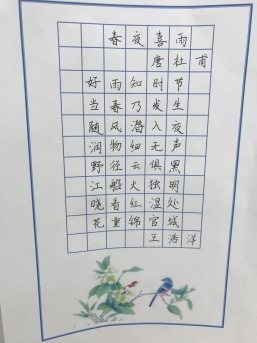 春夜喜雨
唐杜甫
好雨知时节
当春乃发生
随风潜入夜
润物细无声
野径云俱黑
江船火独明
晓看红湿处
花重锦官城
王浩洋